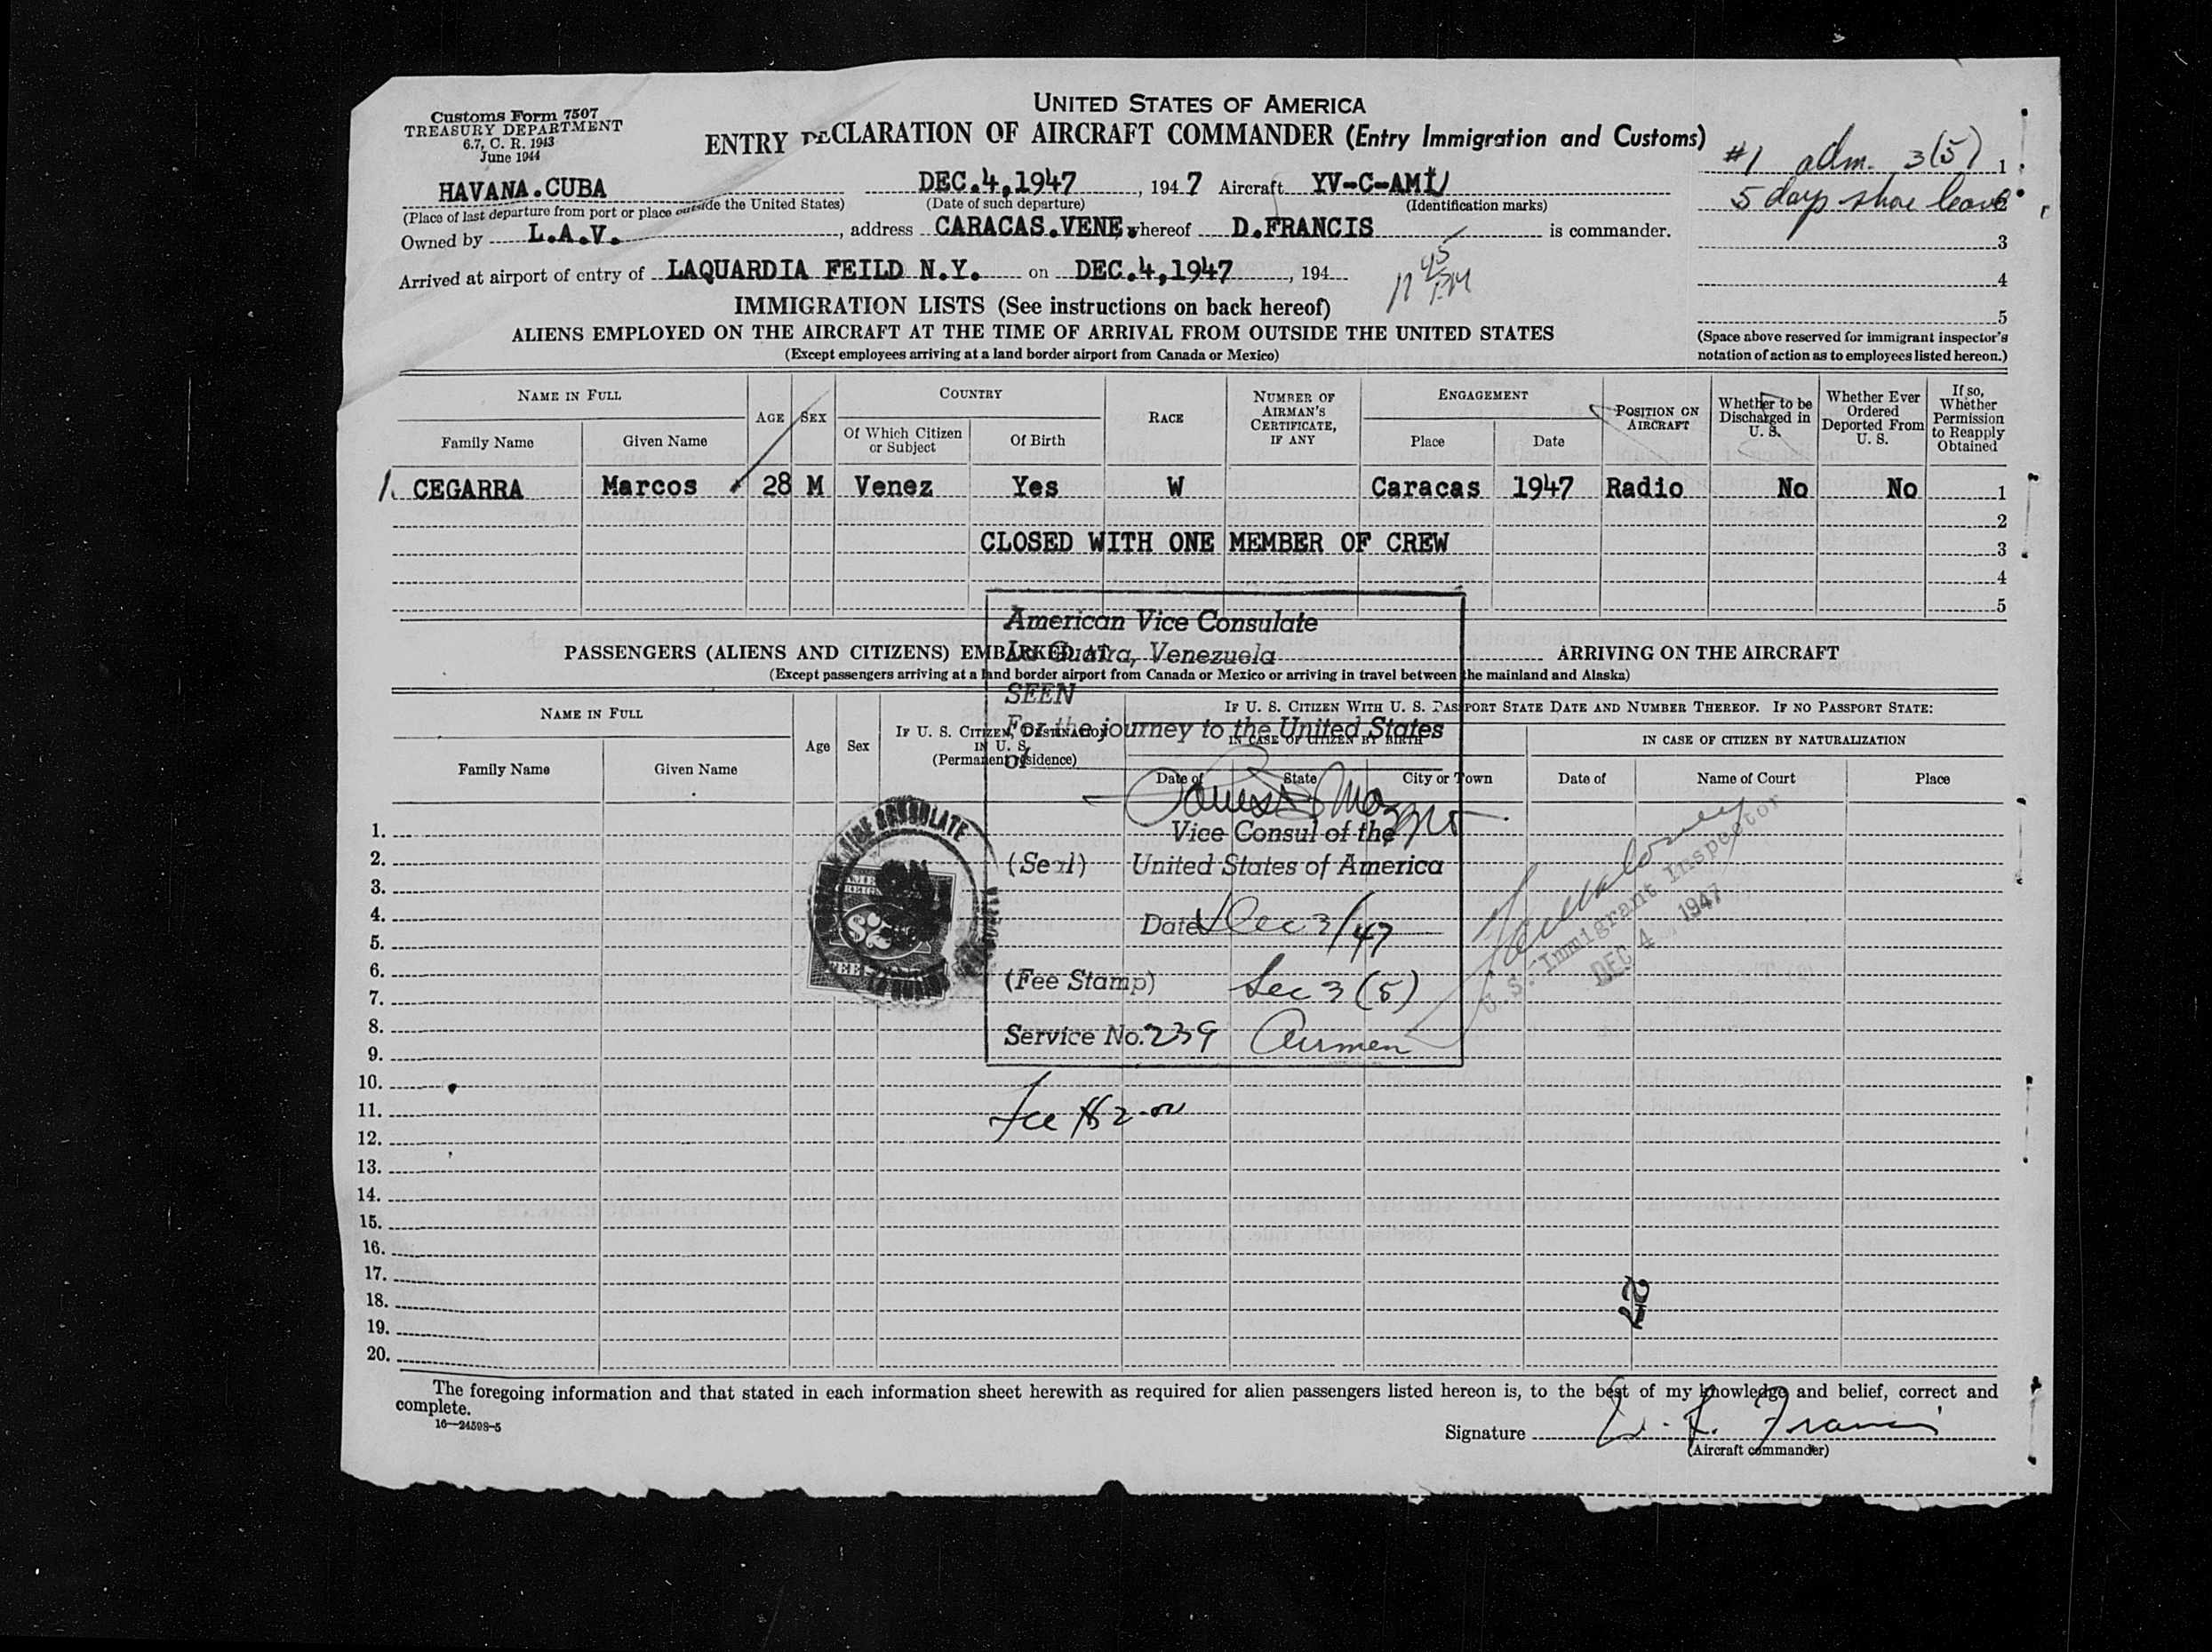 Customs Form 7507
TREASURY DEPARTMENT
6.7, C. R. 1943
June 1944
UNITED STATES OF AMERICA
ENTRY DECLARATION OF AIRCRAFT COMMANDER (Entry Immigration and Customs)
#1 adm. 3(5) 1
5 days shore leave 2
3
4
5
(Space above reserved for immigrant inspector's
notation of action as to employees listed hereon.)
HAVANA.CUBA DEC.4,1947, 1947 Aircraft YV-C-AMI
(Place of last departure from port or place outside the United States) (Date of such departure) (Identification marks)
Owned by L.A.V., address CARACAS.VENE, whereof D.FRANCIS is commander.
Arrived at airport of entry of LAQUARDIA FEILD N.Y. on DEC.4,1947, 194
11 45 PM
IMMIGRATION LISTS (See instructions on back hereof)
ALIENS EMPLOYED ON THE AIRCRAFT AT THE TIME OF ARRIVAL FROM OUTSIDE THE UNITED STATES
(Except employees arriving at a land border airport from Canada or Mexico)
NAME IN FULL AGE SEX COUNTRY RACE NUMBER OF AIRMAN'S CERTIFICATE, IF ANY ENGAGEMENT POSITION ON AIRCRAFT Whether to be Discharged in U. S. Whether Ever Ordered Deported From U. S. If so, Whether Permission to Reapply Obtained
Family Name Given Name Of Which Citizen or Subject Of Birth Place Date
1. CEGARRA Marcos 28 M Venez Yes W Caracas 1947 Radio No No 1
2
CLOSED WITH ONE MEMBER OF CREW 3
4
5
PASSENGERS (ALIENS AND CITIZENS) EMBARKED AT ARRIVING ON THE AIRCRAFT
(Except passengers arriving at a land border airport from Canada or Mexico or arriving in travel between the mainland and Alaska)
NAME IN FULL Age Sex IF U. S. CITIZEN, DESTINATION IN U. S. (Permanent residence) IF U. S. CITIZEN WITH U. S. PASSPORT STATE DATE AND NUMBER THEREOF. IF NO PASSPORT STATE:
IN CASE OF CITIZEN BY BIRTH IN CASE OF CITIZEN BY NATURALIZATION
Family Name Given Name Date of State City or Town Date of Name of Court Place
American Vice Consulate
La Guaira, Venezuela
SEEN
For the journey to the United States
of
Vice Consul of the
(Seal) United States of America
Date Dec 3/47
(Fee Stamp) Sec 3 (5)
Service No. 239 Airmen
Fee $2.00
VICE CONSULATE
$2
FEE
U.S. Immigrant Inspector
DEC 4 1947
1.
2.
3.
4.
5.
6.
7.
8.
9.
10.
11.
12.
13.
14.
15.
16.
17.
18.
19.
20.
27
The foregoing information and that stated in each information sheet herewith as required for alien passengers listed hereon is, to the best of my knowledge and belief, correct and
complete.
16—24598-5
Signature D. F. Francis
(Aircraft commander)